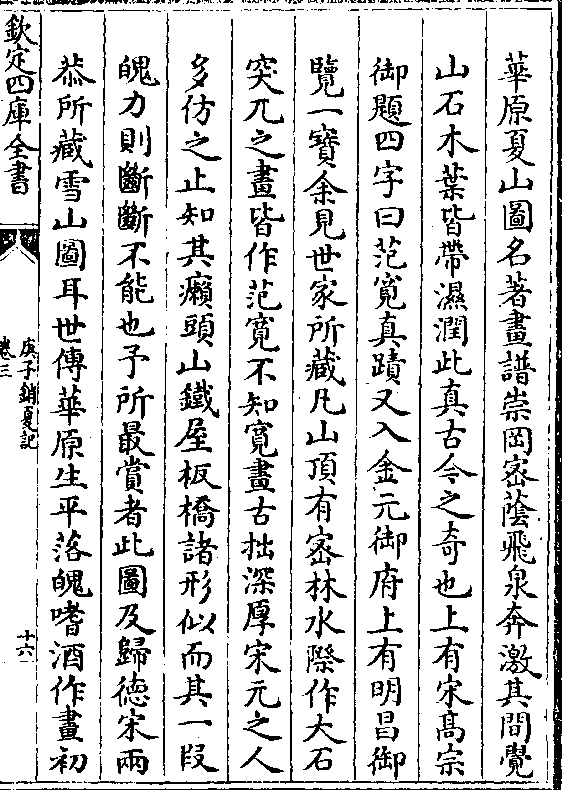 華原夏山圖名著畫譜崇岡密蔭飛泉奔激其間覺
山石木葉皆帶濕潤此真古今之奇也上有宋髙宗
御題四字曰范寛真蹟又入金元御府上有明昌御
覽一寶余見世家所藏凡山頂有密林水際作大石
突兀之畫皆作范寛不知寛畫古拙深厚宋元之人
多仿之止知其癩頭山鐵屋板橋諸形似而其一段
魄力則斷斷不能也予所最賞者此圖及歸德宋兩
恭所藏雪山圖耳世傳華原生平落魄嗜酒作畫初
欽定四庫全書
庚子銷夏記
卷三
十六